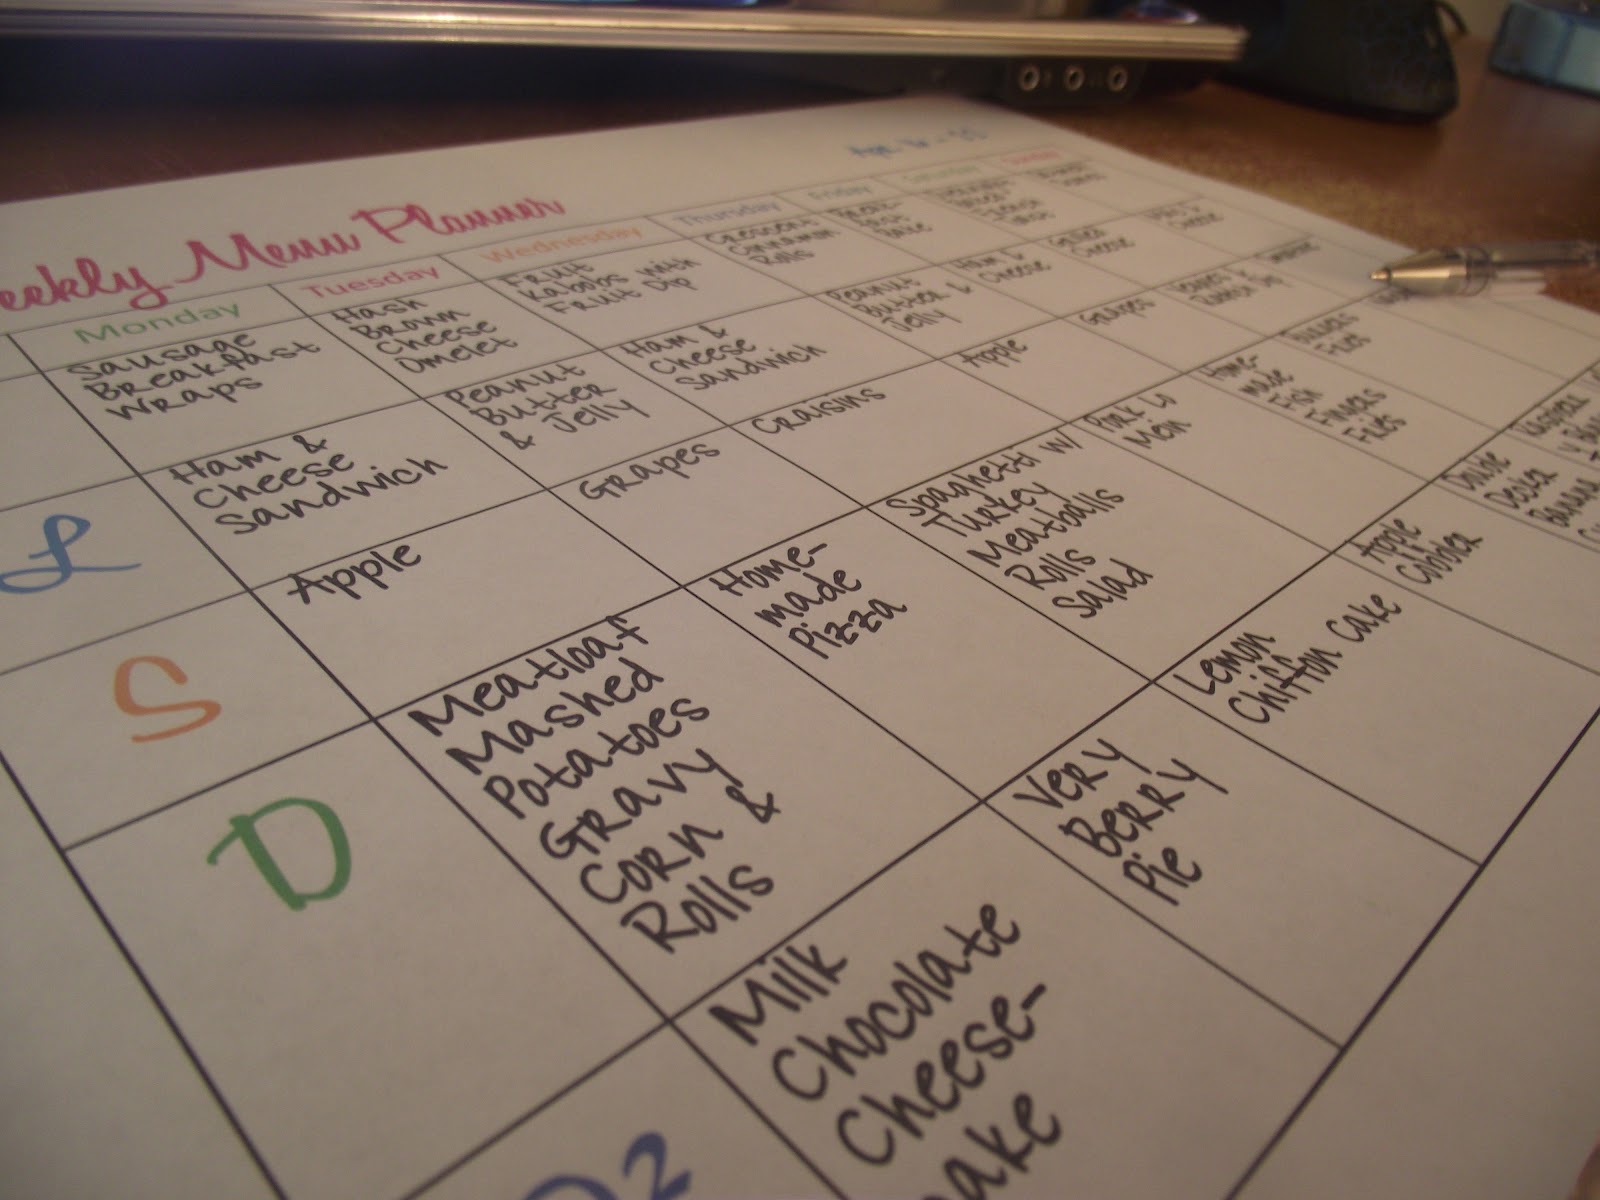 eekly Menu Planner
Apr.
Monday
Tuesday
Wednesday
Thursday
Friday
Saturday
Sunday
Sausage
Breakfast
Wraps
Hash
Brown
Cheese
Omelet
Fruit
Kabobs with
Fruit Dip
Crescent
Cinnamon
Rolls
L
Ham &
Cheese
Sandwich
Peanut
Butter
& Jelly
Ham &
Cheese
Sandwich
Peanut
Butter &
Jelly
Ham &
Cheese
Grilled
Cheese
Mac &
Cheese
S
Apple
Grapes
Craisins
Apple
Grapes
D
Meatloaf
Mashed
Potatoes
Gravy
Corn &
Rolls
Home-
made
Pizza
Spaghetti w/
Turkey
Meatballs
Rolls
Salad
Pork Lo
Mein
Home-
made
Fish
Fingers
Fries
Burgers
Fries
D2
Milk
Chocolate
Cheese-
ake
Very
Berry
Pie
Lemon
Chiffon Cake
Apple
Cobbler
Double
Decker
Banana